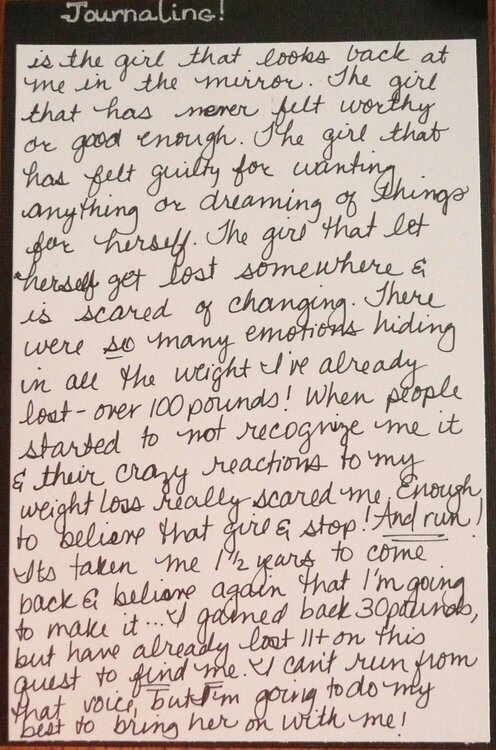 Journaling!
is the girl that looks back at
me in the mirror. The girl
that has never felt worthy
or good enough. The girl that
has felt guilty for wanting
anything or dreaming of things
for herself. The girl that let
herself get lost somewhere &
is scared of changing. There
were so many emotions hiding
in all the weight I've already
lost - over 100 pounds! When people
started to not recognize me it
& their crazy reactions to my
weight loss really scared me. Enough
to believe that girl & stop! And run!
Its taken me 1 1/2 years to come
back & believe again that I'm going
to make it... I gained back 30 pounds,
but have already lost 11+ on this
quest to find me. I can't run from
that voice, but I'm going to do my
best to bring her on with me!